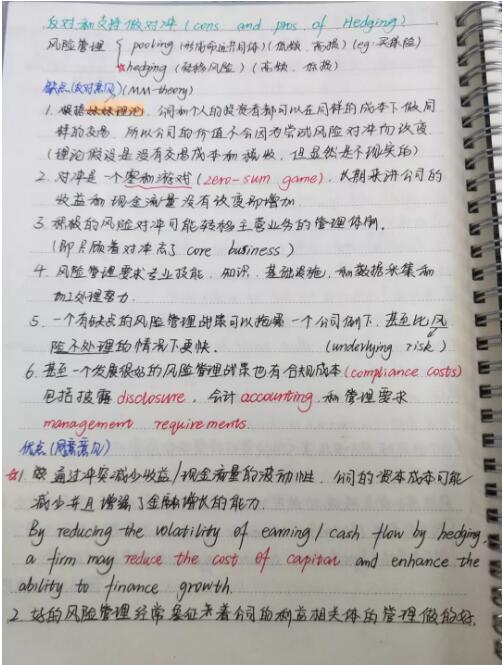 反对和支持做对冲 (cons and pros of Hedging)
风险管理 { pooling (形成命运共同体) (低频、高损) (eg: 买保险)
☆hedging (转移风险) (高频、低损)
缺点 (反对意见) (MM-theory)
1. 根据妹妹理论, 公司和个人的投资者都可以在同样的成本下做同
样的交易. 所以公司的价值不会因为尝试风险对冲而改变.
(理论假设是没有交易成本和税收, 但显然是不现实的)
2. 对冲是一个零和游戏 (zero-sum game), 长期来讲公司的
收益和现金流量没有改变即增加.
3. 积极的风险对冲可能转移主营业务的管理
(即只顾着对冲忘了 core business)
4. 风险管理要求专业技能、知识、基础设施、和数据采集和
加工处理努力.
5. 一个有缺点的风险管理战略可以拖累一个公司倒下. 甚至比风
险不处理的情况下更快. (underlying risk)
6. 甚至一个发展很好的风险管理战略也有合规成本 (compliance costs)
包括披露 disclosure, 会计 accounting, 和管理要求
management requirements.
优点 (同意意见)
☆1. 通过冲突减少收益/现金流量的波动性. 公司的资本成本可能
减少并且增强了金融增长的能力.
By reducing the volatility of earning / cash flow by hedging.
a firm may reduce the cost of capital and enhance the
ability to finance growth.
2. 好的风险管理经常象征着公司的利益相关体的管理做的好.